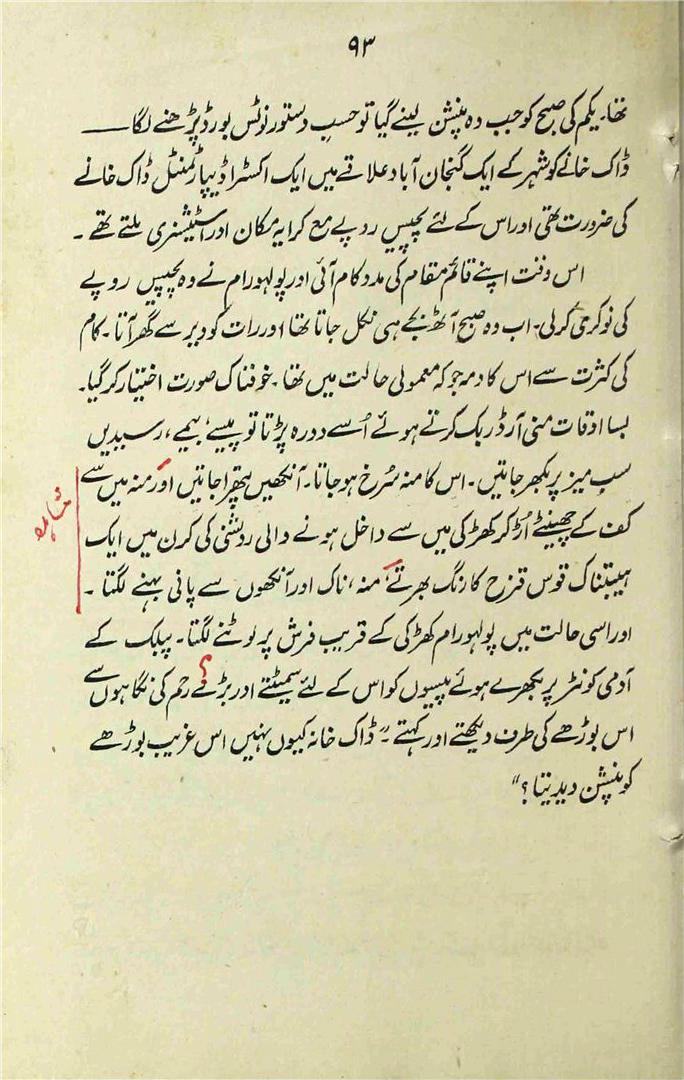 ۹۳
تھا۔ یکم کی صبح کو جب وہ پنشن لینے گیا تو حسبِ دستور نوٹس بورڈ پڑھنے لگا ——
ڈاک خانے کو شہر کے ایک گنجان آباد علاقے میں ایک اکسٹرا ڈیپارٹمنٹل ڈاک خانے
کی ضرورت تھی اور اس کے لئے پچیس روپے مع کرایہ مکان اور اسٹیشنری ملتے تھے ۔
اس وقت اپنے قائم مقام کی مدد کام آئی اور پولہو رام نے وہ پچیس روپے
کی نوکری کر لی۔ اب وہ صبح آٹھ بجے ہی نکل جاتا تھا اور رات کو دیر سے گھر آتا ۔ کام
کی کثرت سے اس کا دمہ جو کہ معمولی حالت میں تھا ۔ خوفناک صورت اختیار کر گیا۔
بسا اوقات منی آرڈر بک کرتے ہوئے اُسے دورہ پڑتا تو پیسے، بیمے، رسیدیں
سب میز پر بکھر جاتیں ۔ اس کا منہ سُرخ ہو جاتا۔ آنکھیں پتھرا جاتیں اور منہ میں سے
کف کے چھینٹے اُڑ کر کھڑکی میں سے داخل ہونے والی روشنی کی کرن میں ایک
ہیبتناک قوس قزح کا رنگ بھرتے، منہ، ناک اور آنکھوں سے پانی بہنے لگتا ۔
اور اسی حالت میں پولہو رام کھڑکی کے قریب فرش پر لوٹنے لگتا۔ پبلک کے
آدمی کونٹر پر بکھرے ہوئے پیسوں کو اس کے لئے سمیٹتے اور بڑے رحم کی نگاہوں سے
اس بوڑھے کی طرف دیکھتے اور کہتے ۔" ڈاک خانہ کیوں نہیں اس غریب بوڑھے
کو پنشن دیدیتا ؟"